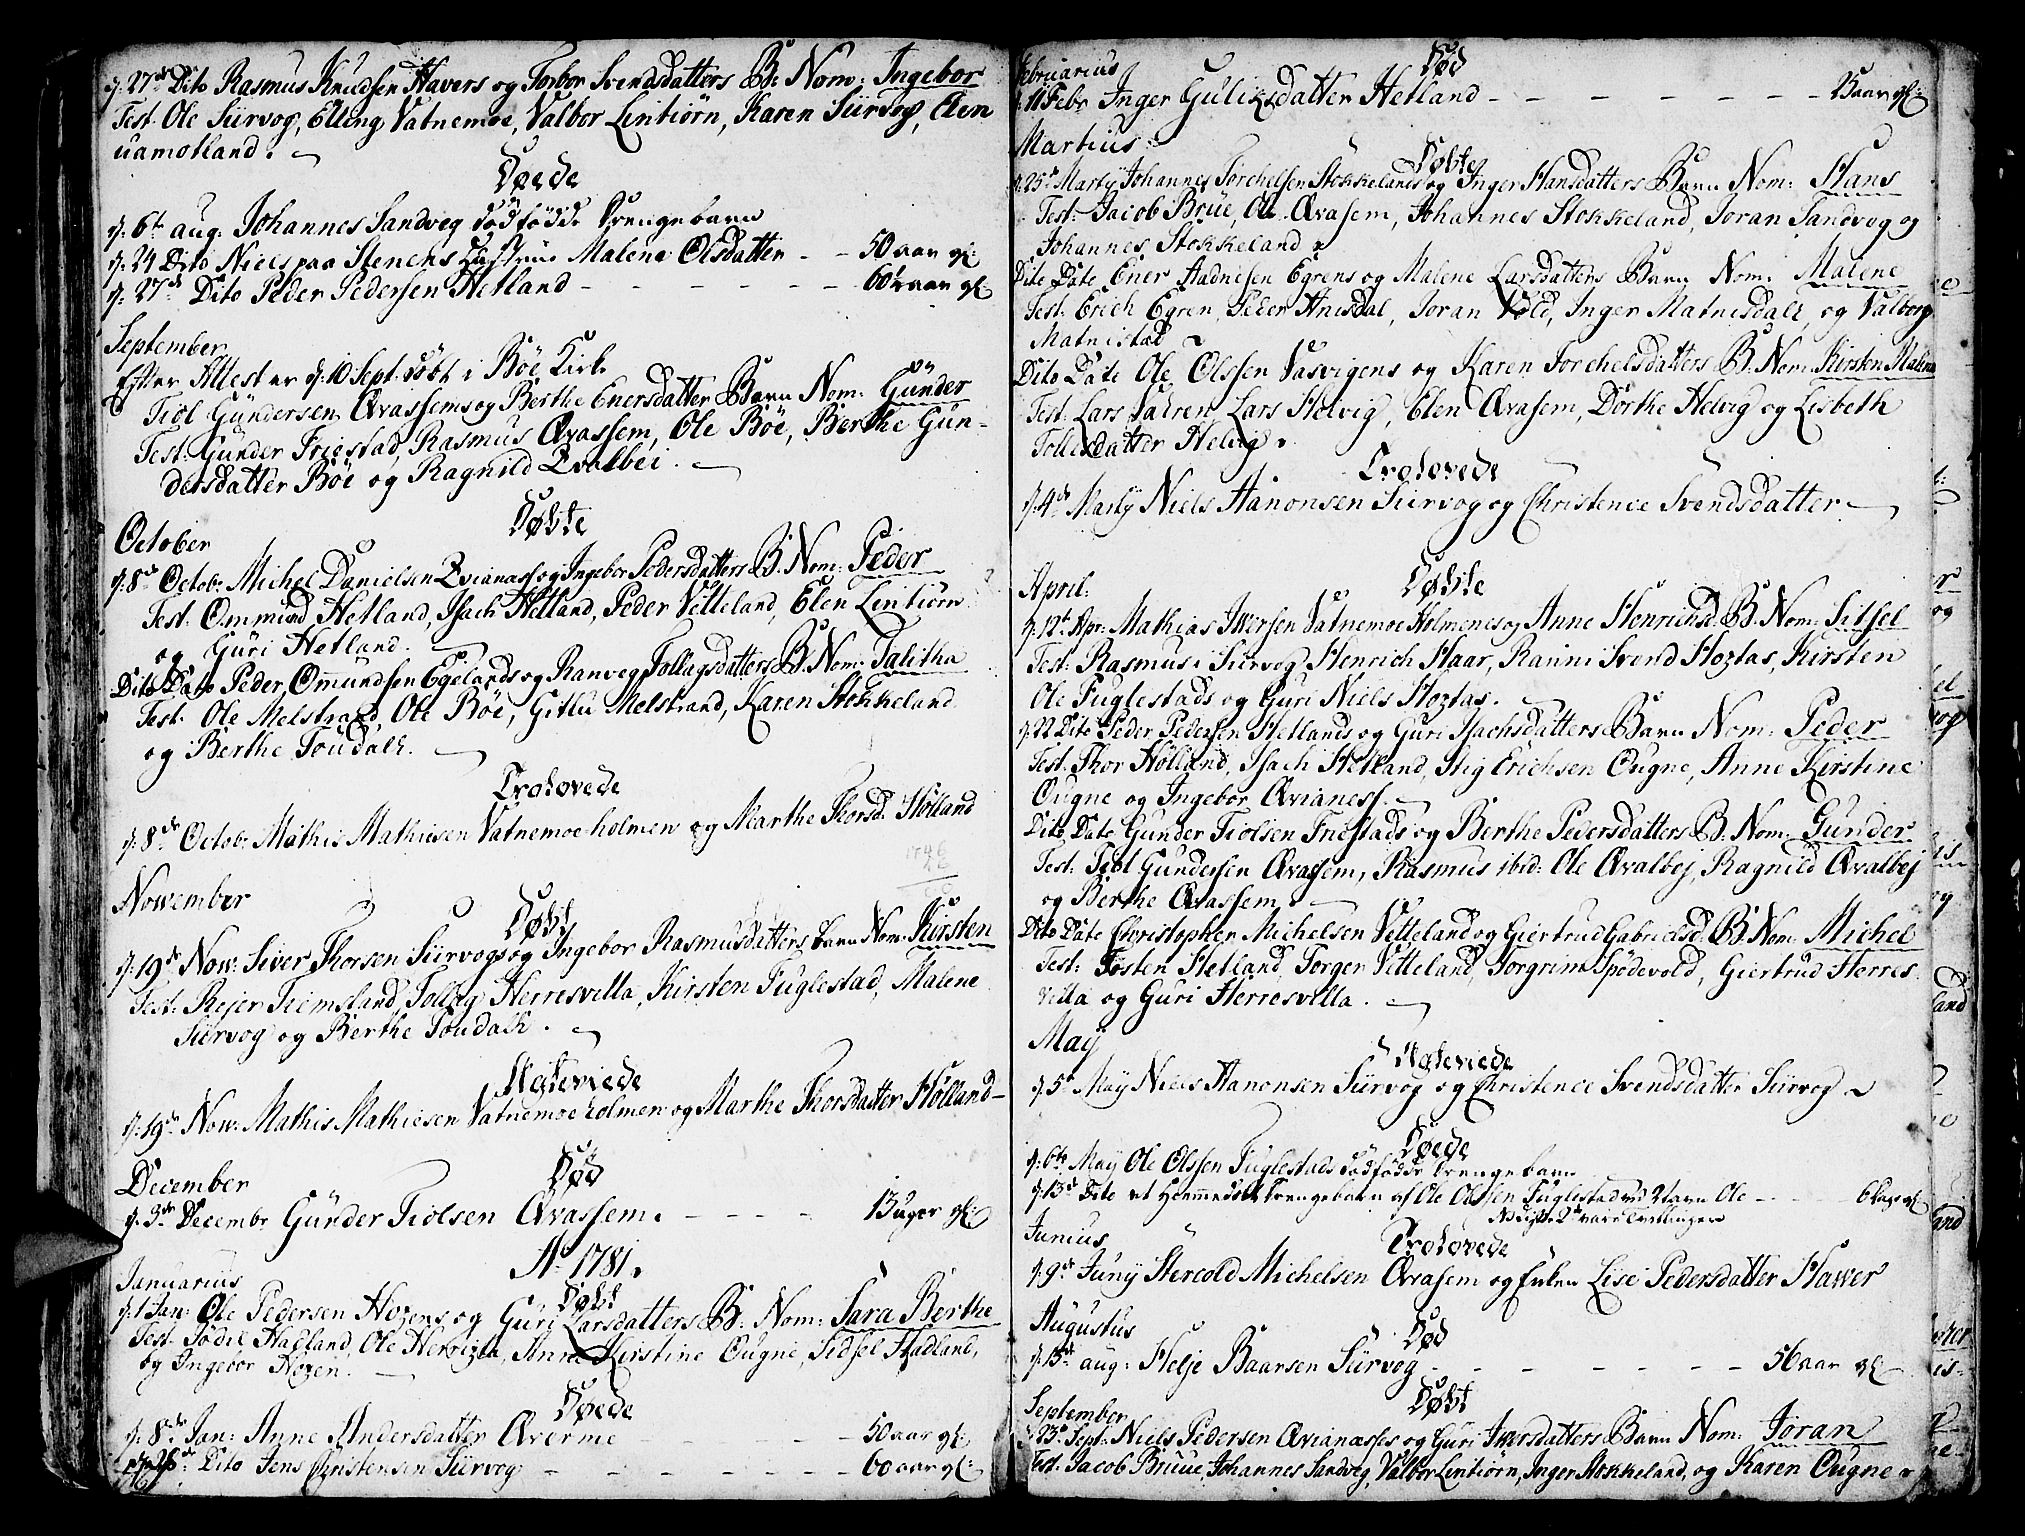 d: 27de Dito Rasmus Knudsen Havers og Torbor Svendsdatters B: Nom: Ingebor
Test. Ole Siirvog, Elling Vatnemoe, Valbor Lintiørn, Karen Siirvog, Elen
uamotland.
Døede
d: 6te aug. Johannes Sandveg dødfødde Drengebarn
d: 24 Dito Niels paa Stenens Hustrue Malene Olsdatter - - 50 aar gl:
d: 27de Dito Peder Pedersen Hetland - - - - - - 60 aar gl:
September
Efter Attest er d: 10 Sept: døbt i Bøe Kirke
Tiøl Gundersen Qvassems og Berthe Enersdatter Barn Nom: Gunder
Test: Gunder Friestad, Rasmus Qvassem, Ole Bøe, Berthe Gun-
dersdatter Bøe og Ragnild Qvalbei.
October
Døbte
d: 8de Octob: Michel Danielsen Qvianess og Ingebor Pedersdatters B. Nom: Peder
Test: Ommund Hetland, Isach Hetland, Peder Vetteland, Elen Lintiørn
og Guri Hetland.
Dito Dato Peder Omundsen Egelands og Ranveg Tollagsdatters B. Nom: Talitha
Test. Ole Melstrand, Ole Bøe, Gitlu Melstrand, Karen Stokkeland
og Berthe Toudalk.
Trolovede
d: 8de Octob: Mathis Mathiesen Vatnemoe holmen og Marthe Thorsd. Hølland
November
Døbt
d: 19de Now: Siver Thorsen Siirvogs og Ingebor Rasmusdatters barn Nom: Kirsten
Test: Rejer Tiemsland, Tollag Herresvilla, Kirsten Fuglestad, Malene
Siirvog og Berthe Toudalk.
Egteviede
d: 19de Now: Mathis Mathiesen Vatnemoe holmen og Marthe Thorsdatter Hølland
December
Død
d: 3de Decembr Gunder Tiolsen Qvassem. - - - - 13 uger gl:
Ao 1781.
Januarius
Døbt
d: 1 Jan: Ole Pedersen Hozens og Guri Larsdatters B: Nom: Sara Berthe
Test. Sødil Hadland, Ole Herrizea, Anne Kirstine Ougne, Sidsel Hadland,
og Ingebor Hozen.
Døede
d: 8de Jan: Anne Andersdatter Qverme 50 aar gl:
Dito Jens Christensen Siirvog - - - - - 60 aar gl:
Februarius
Død
d: 11 Febr Inger Guliksdatter Hetland - - - - - - 25 aar gl:
Martius
Døbte
d: 25de Martij Johannes Torchelsen Stokkelands og Inger Hansdatters Barn Nom: Hans
Test: Jacob Brue, Ole Qvassem, Johannes Stokkeland, Joran Sandvog og
Johannes Stokkeland
Dito Dato Ener Aadnesen Egrens og Malene Larsdatters Barn Nom: Malene
Test: Erich Egren, Peder Anisdal, Joran Vold, Inger Matnisdalk, og Valborg
Matnistad
Dito Dato Ole Olssen Vasvigens og Karen Torchelsdatters B. Nom: Kirsten Malene
Test: Lars Salren, Lars Helvig, Elen Qvassem, Dorthe Helvig og Lisbeth
Tollesdatter Helvig.
Trolovede
d: 4de Martij Niels Hanonsen Siirvog og Christence Svendsdatter
April.
Døbte
d: 12te Apr: Mathias Iversen Vatnemoe Holmenes og Anne Henrichsd. B: Nom: Sitsel
Test: Rasmus i Siirvog, Henrich Haar, Ranni Svend Hoztas, Kirsten
Ole Fuglestads og Guri Niels Hoztas.
d: 22 Dito Peder Pedersen Hetlands og Guri Isachsdatters Barn Nom: Peder
Test. Thor Hølland, Isach Hetland, Stig Erichsen Ougne, Anne Kirstine
Ougne og Ingebor Qvianess.
Dito Dato Gunder Tiolsen Friestads og Berthe Pedersdatters B: Nom: Gunder
Test: Tiøl Gundersen Qvassem, Rasmus ibid: Ole Qvalbej, Ragnild Qvalbej
og Berthe Qvassem.
Dito Dato Christopher Michelsen Vetteland og Giertrud Gabrielsd: B. Nom: Michel
Test: Tosten Hetland, Torger Vetteland, Torgrim Spødevold, Giertrud Herres
villa og Guri Herresvilla.
Maij
Egteviede
d: 5te Maij Niels Hanonsen Siirvog og Christence Svendsdatter Siirvog
Døede
d: 6te Maij Ole Olssen Fuglestads dødfødde Drengebarn
d: 13de Dito et Drengebarn af Ole Olssen Fuglestad ved Navn Ole - - - gl:
Tvillinger
Junius
Trolovede
d: 9de Junij Stercold Michelsen Qvassem og Enken Lise Pedersdatter Hawer
Augustus
Død
d: 15de aug: Helje Baarsen Siirvog - - - - - - 56 aar gl
September
Døbt
d: 23de Sept: Niels Pedersen Qvianesses og Guri Iversdatters Barn Nom: Joran
Test. Jacob Bruue, Johannes Sandveg, Valbor Lintiørn, Inger Stokkeland, og Karen Ougne